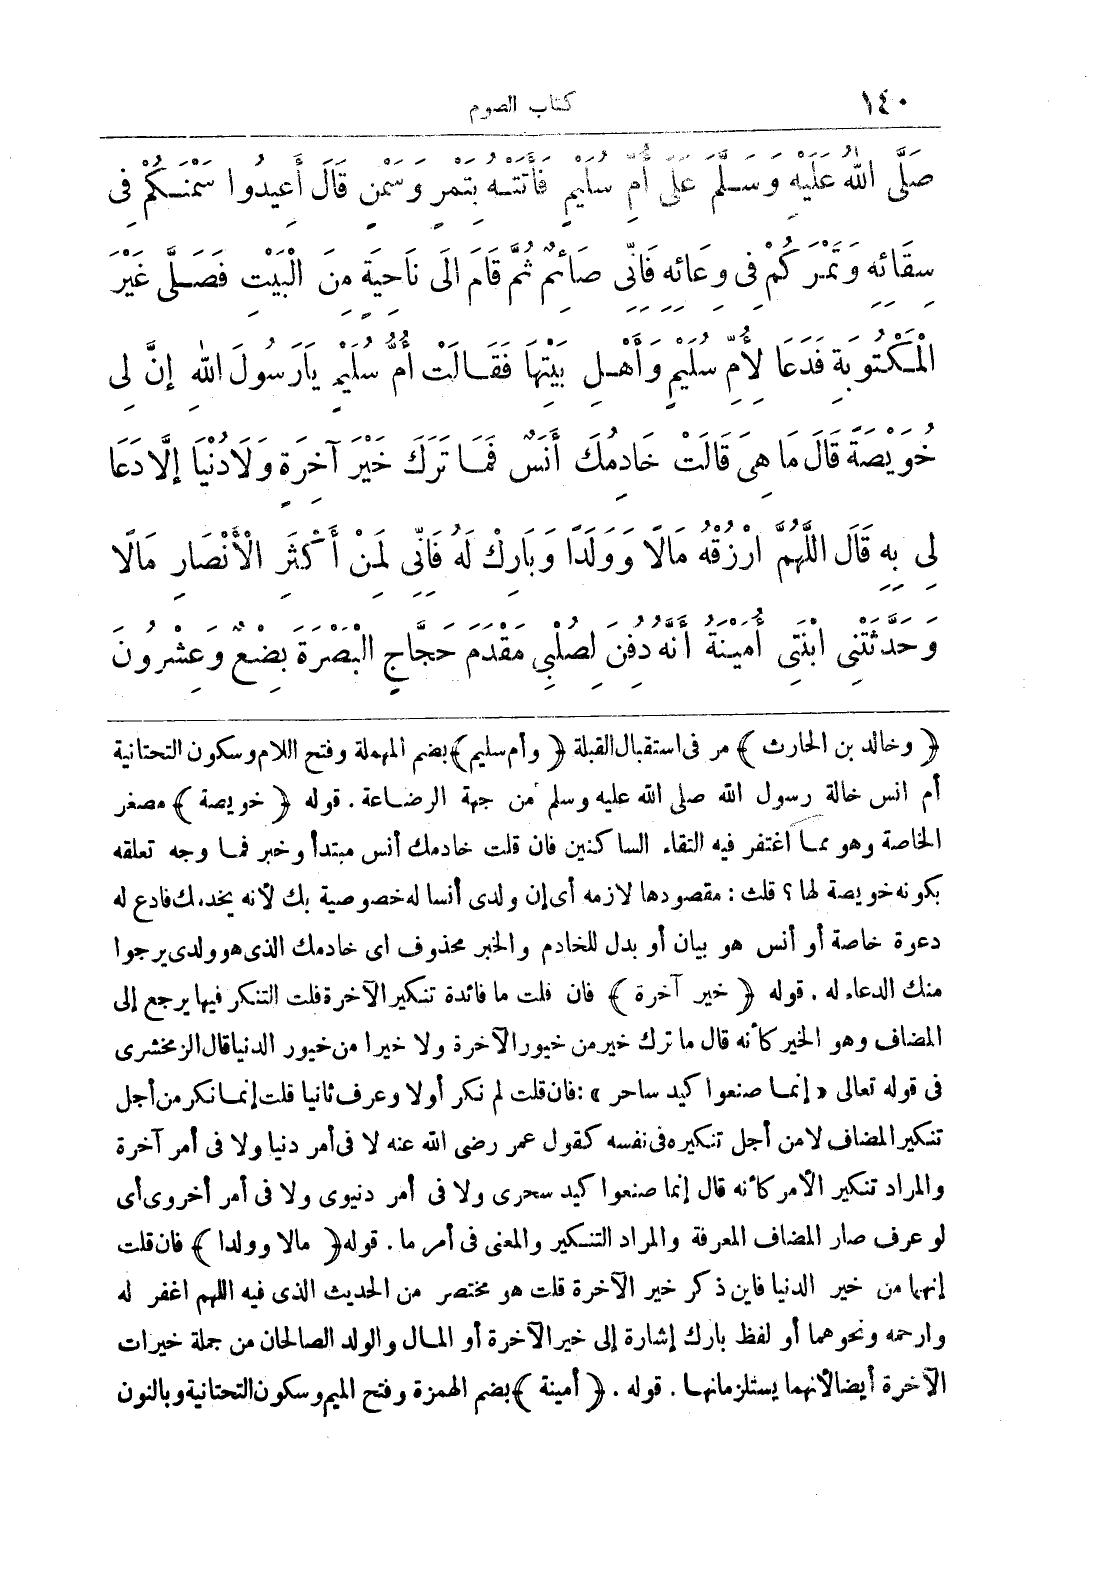 ١٤٠ كتاب الصوم
صَلَّى اللهُ عَلَيْهِ وَسَلَّمَ عَلَى أُمِّ سُلَيْمٍ فَأَتَتْهُ بِتَمْرٍ وَسَمْنٍ قَالَ أَعِيدُوا سَمْنَكُمْ فِي
سِقَائِهِ وَتَمْرَكُمْ فِي وِعَائِهِ فَإِنِّي صَائِمٌ ثُمَّ قَامَ الَى نَاحِيَةٍ مِنَ الْبَيْتِ فَصَلَّى غَيْرَ
الْمَكْتُوبَةِ فَدَعَا لِأُمِّ سُلَيْمٍ وَأَهْلِ بَيْتِهَا فَقَالَتْ أُمُّ سُلَيْمٍ يَارَسُولَ اللهِ إِنَّ لِي
خُوَيْصَةً قَالَ مَا هِيَ قَالَتْ خَادِمُكَ أَنَسٌ فَمَا تَرَكَ خَيْرَ آخِرَةٍ وَلَادُنْيَا إِلَّا دَعَا
لِي بِهِ قَالَ اللَّهُمَّ ارْزُقْهُ مَالًا وَوَلَدًا وَبَارِكْ لَهُ فَانِّي لَمِنْ أَكْثَرِ الْأَنْصَارِ مَالًا
وَحَدَّثَتْنِي ابْنَتِي أُمَيْنَةُ أَنَّهُ دُفِنَ لِصُلْبِي مَقْدَمَ حَجَّاجٍ الْبَصْرَةَ بِضْعٌ وَعِشْرُونَ
﴿ وخالد بن الحارث ﴾ مر فى استقبال القبلة ﴿ وأم سليم ﴾ بضم المهملة وفتح اللام وسكون التحتانية
أم انس خالة رسول الله صلى الله عليه وسلم من جهة الرضاعة . قوله ﴿ خويصة ﴾ مصغر
الخاصة وهو مما اغتفر فيه التقاء الساكنين فان قلت خادمك أنس مبتدأ وخبر فما وجه تعلقه
بكونه خويصة لها ؟ قلت : مقصودها لازمه أى إن ولدى أنسا له خصوصية بك لأنه يخدمك فادع له
دعوة خاصة أو أنس هو بيان أو بدل للخادم والخبر محذوف اى خادمك الذى هو ولدى يرجوا
منك الدعاء له . قوله ﴿ خير آخرة ﴾ فان قلت ما فائدة تنكير الآخرة قلت التنكر فيها يرجع إلى
المضاف وهو الخير كأنه قال ما ترك خير من خيور الآخرة ولا خيرا من خيور الدنيا قال الزمخشرى
فى قوله تعالى « إنما صنعوا كيد ساحر » : فان قلت لم نكر أولا وعرف ثانيا قلت إنما نكر من أجل
تنكير المضاف لا من أجل تنكيره فى نفسه كقول عمر رضى الله عنه لا فى أمر دنيا ولا فى أمر آخرة
والمراد تنكير الأمر كأنه قال إنما صنعوا كيد سحرى ولا فى أمر دنيوى ولا فى أمر أخروى أى
لو عرف صار المضاف المعرفة والمراد التنكير والمعنى فى أمر ما . قوله ﴿ مالا وولدا ﴾ فان قلت
إنهما من خير الدنيا فاين ذكر خير الآخرة قلت هو مختصر من الحديث الذى فيه اللهم اغفر له
وارحمه ونحوهما أو لفظ بارك إشارة إلى خير الآخرة أو المال والولد الصالحان من جملة خيرات
الآخرة أيضا لأنهما يستلزمانها . قوله . ﴿ أمينة ﴾ بضم الهمزة وفتح الميم وسكون التحتانية وبالنون